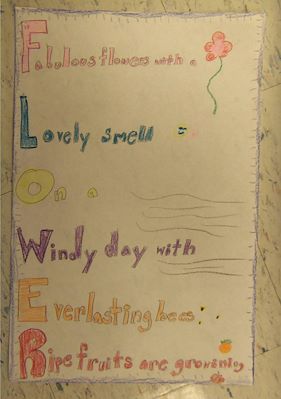 Fabulous flowers with a
Lovely smell
On a
Windy day with
Everlasting bees
Ripe fruits are growing